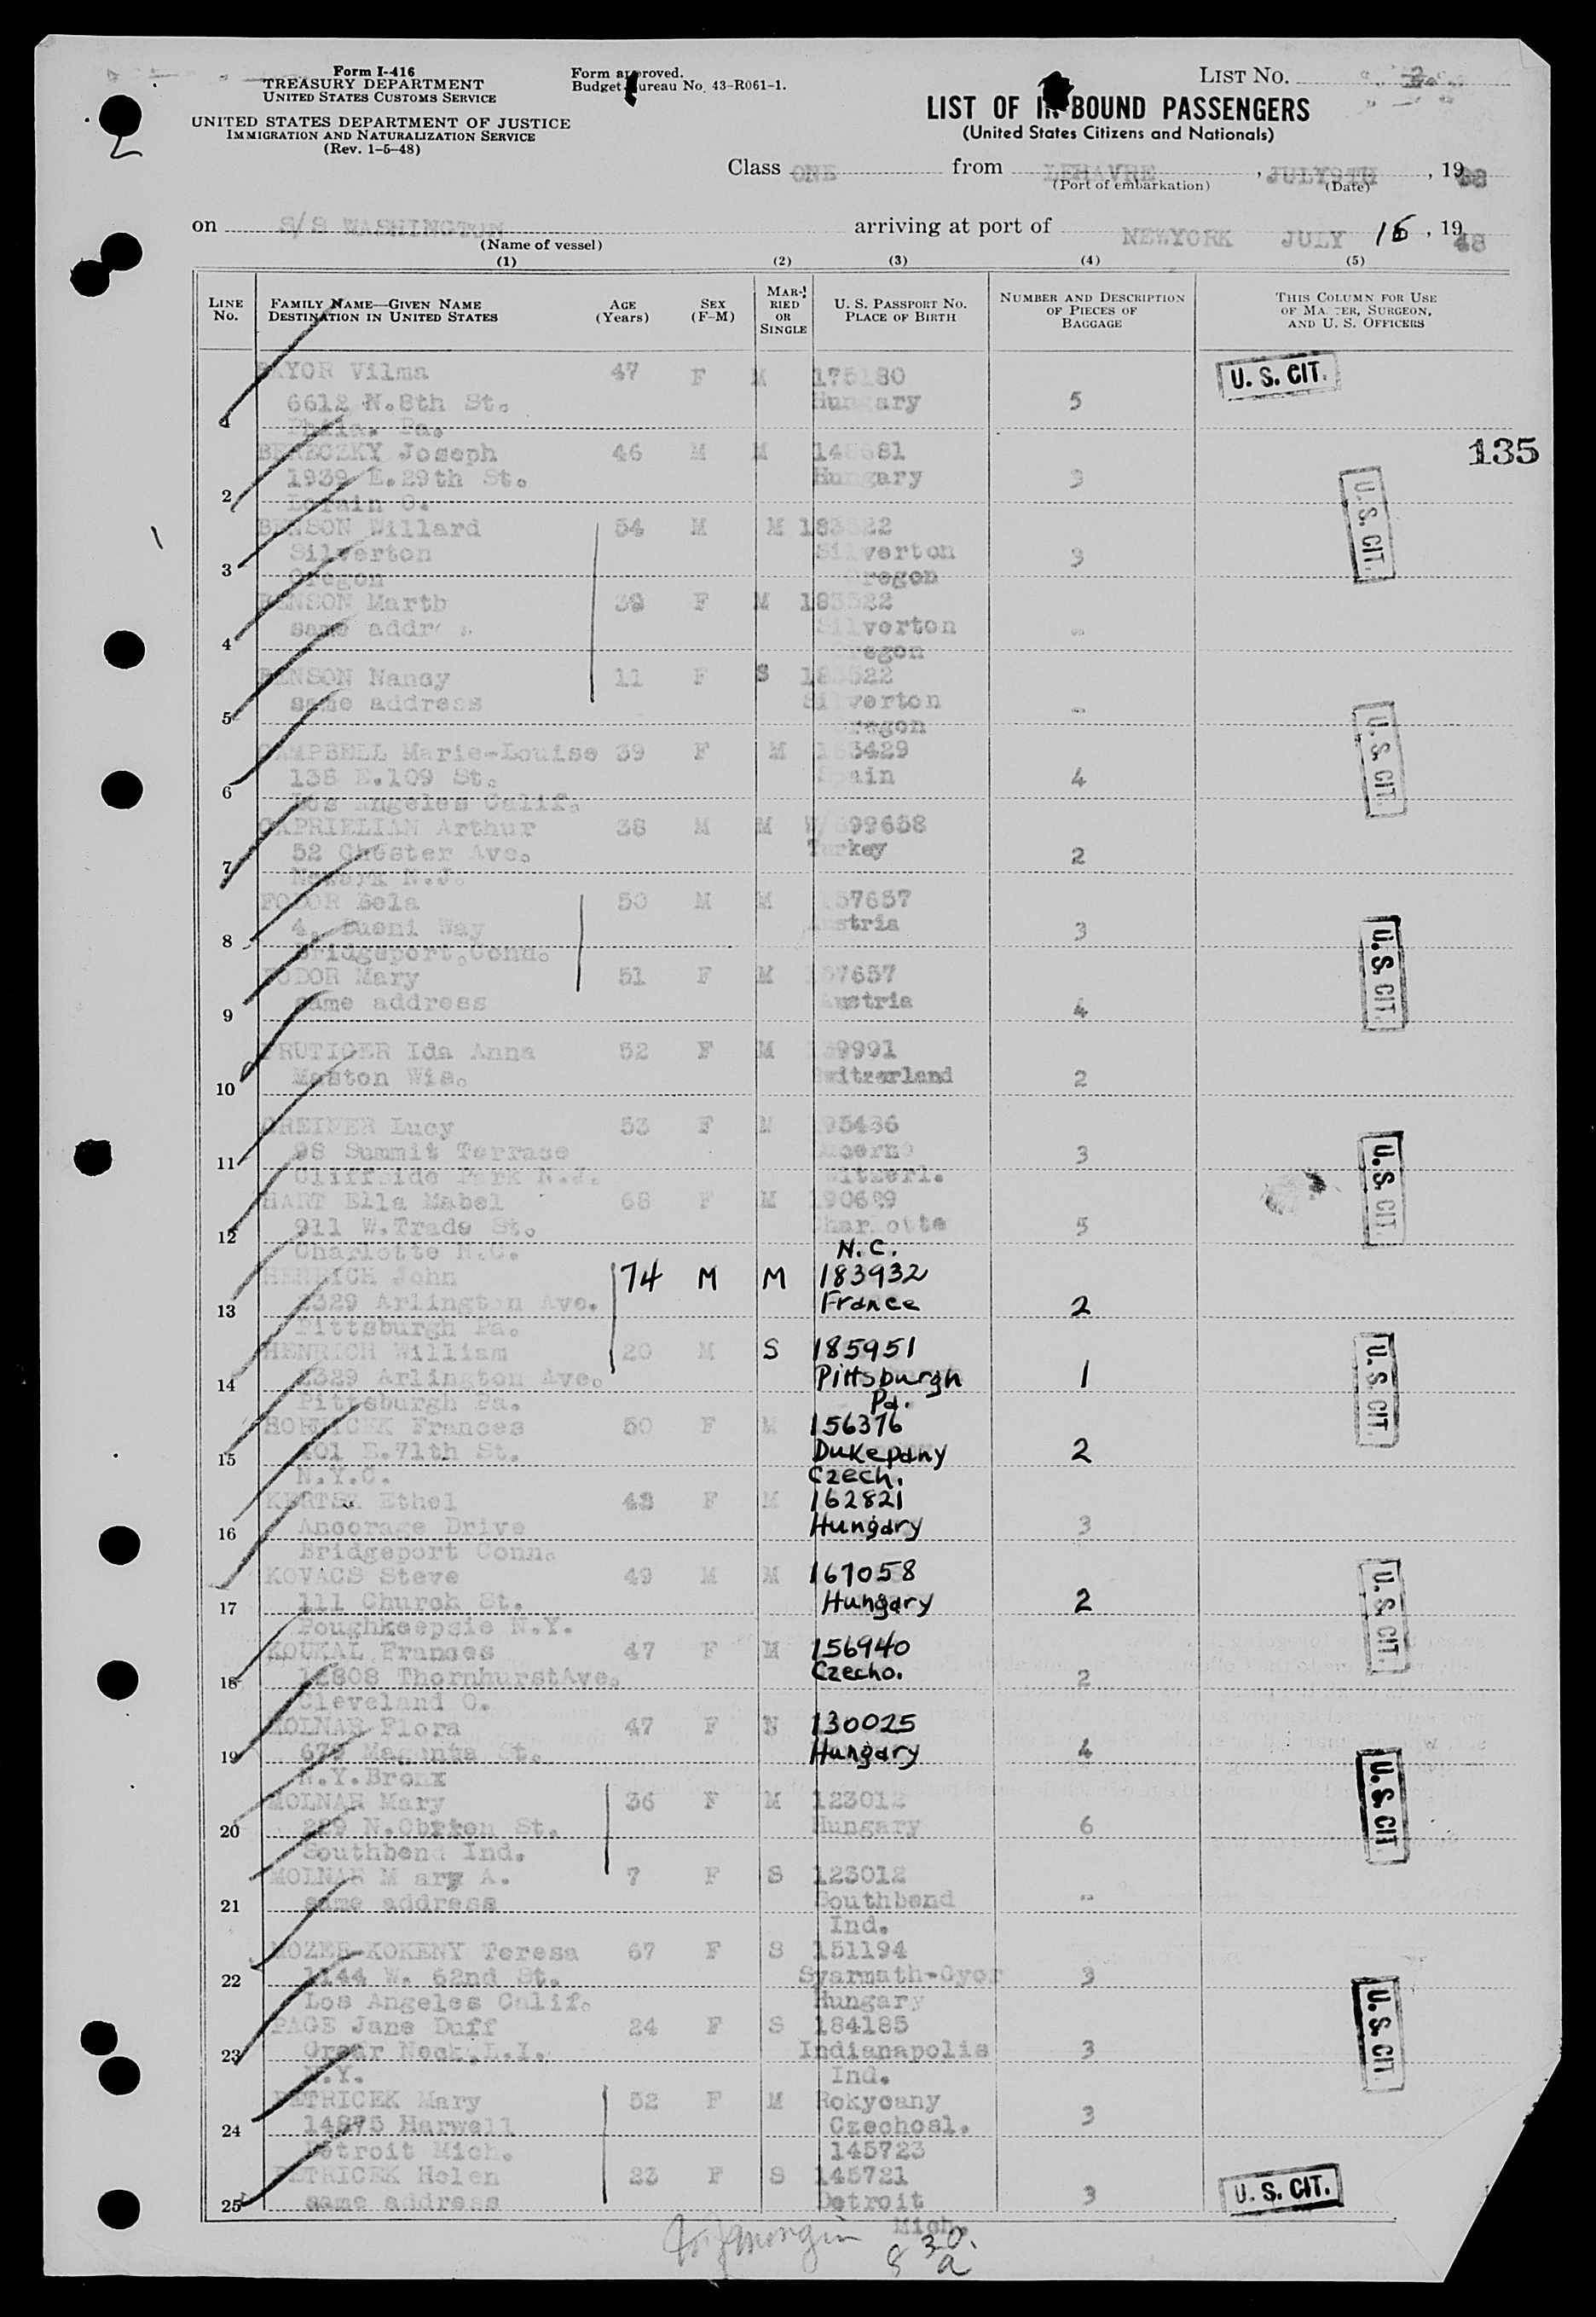 Form I-416
TREASURY DEPARTMENT
UNITED STATES CUSTOMS SERVICE
UNITED STATES DEPARTMENT OF JUSTICE
IMMIGRATION AND NATURALIZATION SERVICE
(Rev. 1-5-48)
Form approved.
Budget Bureau No. 43-R061-1.
LIST NO. 2
LIST OF IN-BOUND PASSENGERS
(United States Citizens and Nationals)
Class ONE from LEHAVRE, JULY9TH, 1948
(Port of embarkation) (Date)
on S/S WASHINGTON arriving at port of NEWYORK JULY 16, 1948
(Name of vessel)
(1) (2) (3) (4) (5)
LINE No. FAMILY NAME—GIVEN NAME DESTINATION IN UNITED STATES AGE (Years) SEX (F-M) MARRIED OR SINGLE U. S. PASSPORT NO. PLACE OF BIRTH NUMBER AND DESCRIPTION OF PIECES OF BAGGAGE THIS COLUMN FOR USE OF MASTER, SURGEON, AND U. S. OFFICERS
Vilma 47 F M 175180 U. S. CIT.
6612 N.8th St. Hungary 5
1 Phila. Pa.
135
BERECZKY Joseph 46 M M
1939 E.29th St. Hungary 3
2 Lorain O.
U. S. CIT.
BENSON Willard 54 M M 183522
Silverton Silverton 3
3 Oregon Oregon
BENSON Marth 39 F M 183522
same Silverton -
4 Oregon
BENSON Nancy 11 F S 183522
same address Silverton -
5 Oregon
U. S. CIT
CAMPBELL Marie-Louise 39 F M
138 E.109 St. Spain 4
6 Los Angeles Calif.
CAPRIELIAN Arthur 38 M M
52 Chester Ave. Turkey 2
7 Newark N.J.
FODOR Bela 50 M M 157657
4, Bueni Way Austria 3
8 Bridgeport,Conn.
U. S. CIT.
FODOR Mary 51 F M 157657
same address Austria 4
9
FRUTIGER Ida Anna 52 F M
Maston Wis. Switzerland 2
10
GREINER Lucy 53 F M
98 Summit Terrace Lucerne 3
11 Cliffside Park N.J. Switzerl.
U. S. CIT.
HART Ella Mabel 68 F M
911 W.Trade St. Charlotte 5
12 Charlotte N.C. N.C.
HENRICH John 74 M M 183932
2329 Arlington Ave. France 2
13 Pittsburgh Pa.
HENRICH William 20 M S 185951
2329 Arlington Ave. Pittsburgh 1
14 Pittsburgh Pa. Pa.
U. S. CIT
Frances 50 F M 156376
E.71th St. Dukepany 2
15 N.Y.C. Czech.
Ethel 48 F M 162821
Ancorage Drive Hungary 3
16 Bridgeport Conn.
KOVACS Steve 49 M M 167058
111 Church St. Hungary 2
17 Poughkeepsie N.Y.
U. S. CIT.
KOUKAL Frances 47 F M 156940
12808 ThornhurstAve. Czecho. 2
18 Cleveland O.
MOLNAR Flora 47 F 130025
679 St. Hungary 4
19 N.Y.Bronx
MOLNAR Mary 36 F M 123012
229 N.Obrien St. Hungary 6
20 Southbend Ind.
U. S. CIT
MOLNAR Mary A. 7 F S 123012
same address Southbend -
21 Ind.
MOZER-KOKENY Teresa 67 F S 151194
1144 W. 62nd St. Syarmath-Gyor 3
22 Los Angeles Calif. Hungary
PAGE Jane Duff 24 F S 184185
Great Neck,L.I. Indianapolis 3
23 N.Y. Ind.
U. S. CIT
PETRICEK Mary 52 F M Rokycany
14875 Harwell Czechosl. 3
24 Detroit Mich. 145723
PETRICEK Helen 23 F S 145721
25 same address Detroit 3 U. S. CIT.
Mich.